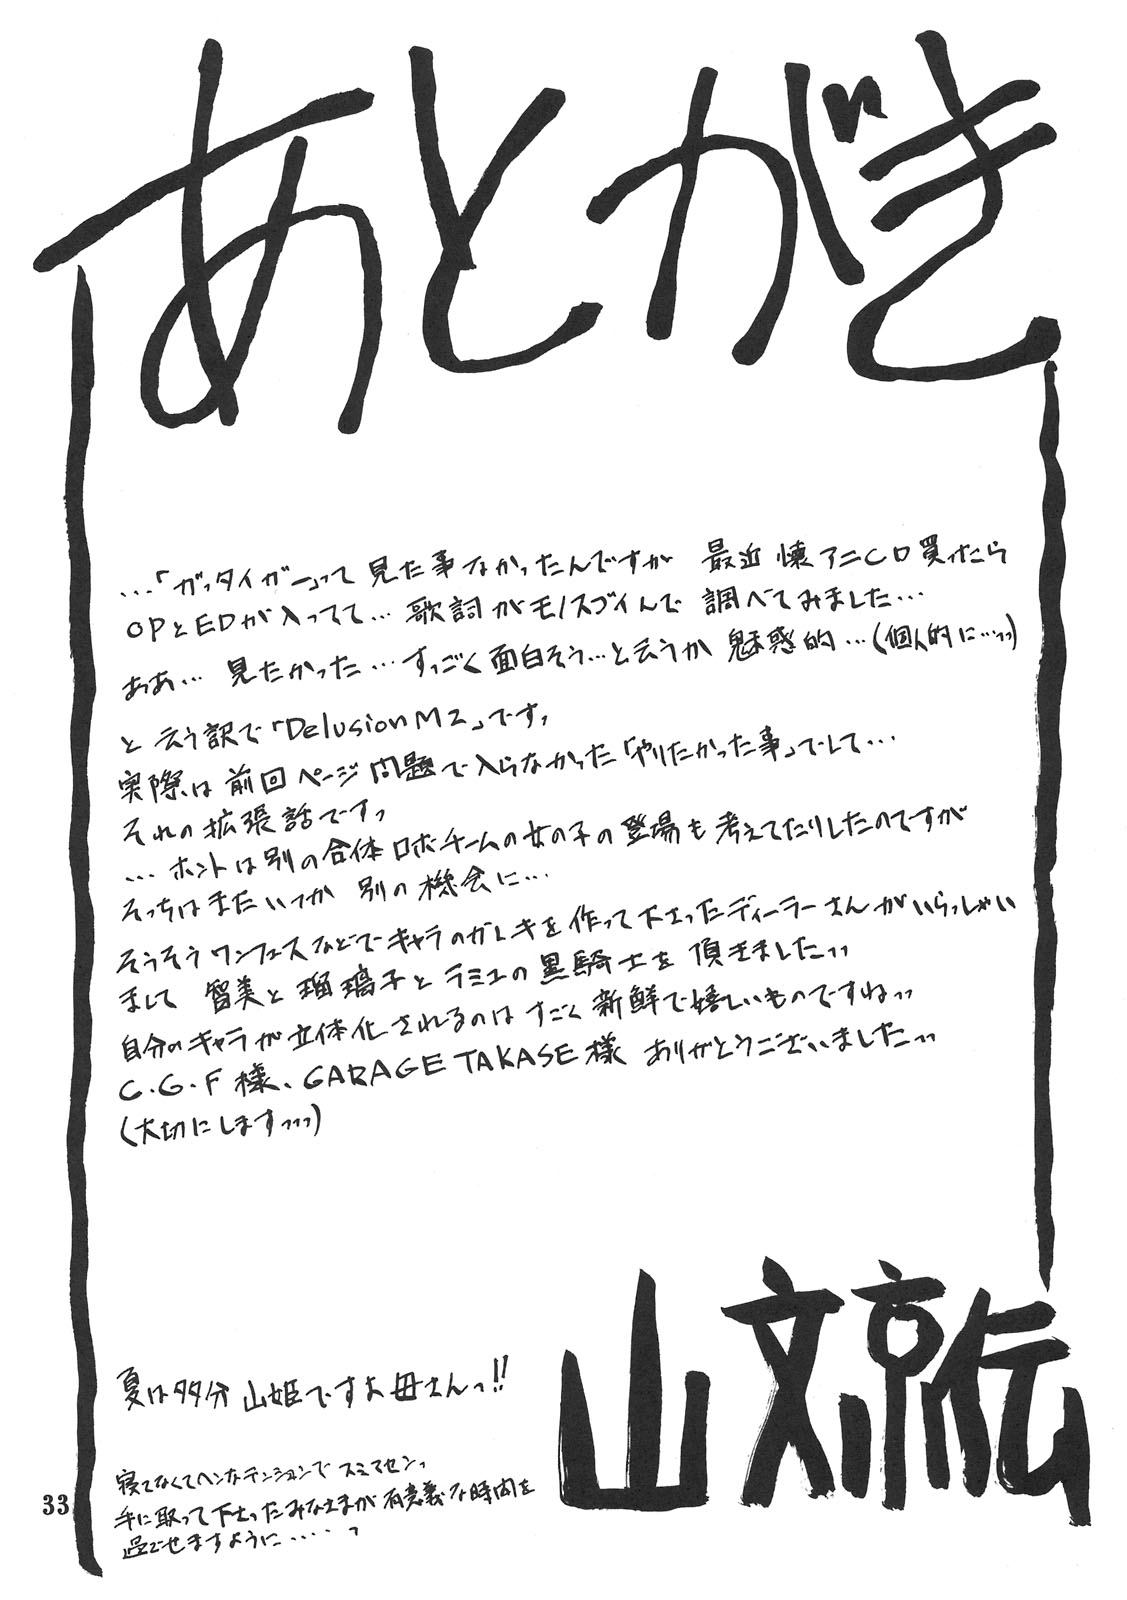 あとがき
…「ガッタイガー」って 見た事なかったんですが 最近 懐アニCD買ったら
OPとEDが入ってて… 歌詞がモノスゴイんで 調べてみました…
ああ… 見たかった… すっごく面白そう…と云うか 魅惑的…(個人的に…っっ)
と云う訳で「Delusion M2」ですっ
実際は 前回ページ問題で入らなかった「やりたかった事」でして…
それの拡張話ですっ
…ホントは別の合体ロボチームの女の子の登場も考えてたりしたのですが
そっちはまたいつか 別の機会に…
そうそうワンフェスなどでキャラのガレキを作って下さったディーラーさんがいらっしゃい
まして 智美と瑠璃子とラミュの黒騎士を 頂きましたっっ
自分のキャラが立体化されるのは すごく新鮮で嬉しいものですねっっ
C.G.F様、GARAGE TAKASE様 ありがとうございましたっっ
(大切にしますっっっ)
夏は多分 山姫ですお母さんっ!!
山文京伝
寝てなくてヘンなテンションで スミマセンっ
手に取って下さったみなさまが 有意義な時間を
過ごせますように‥‥っ
33